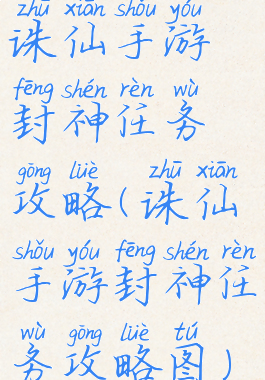 zhū xiān shǒu yóu
诛仙手游
fēng shén rèn wù
封神任务
gōng lüè zhū xiān
攻略(诛仙
shǒu yóu fēng shén rèn
手游封神任
wù gōng lüè tú
务攻略图)